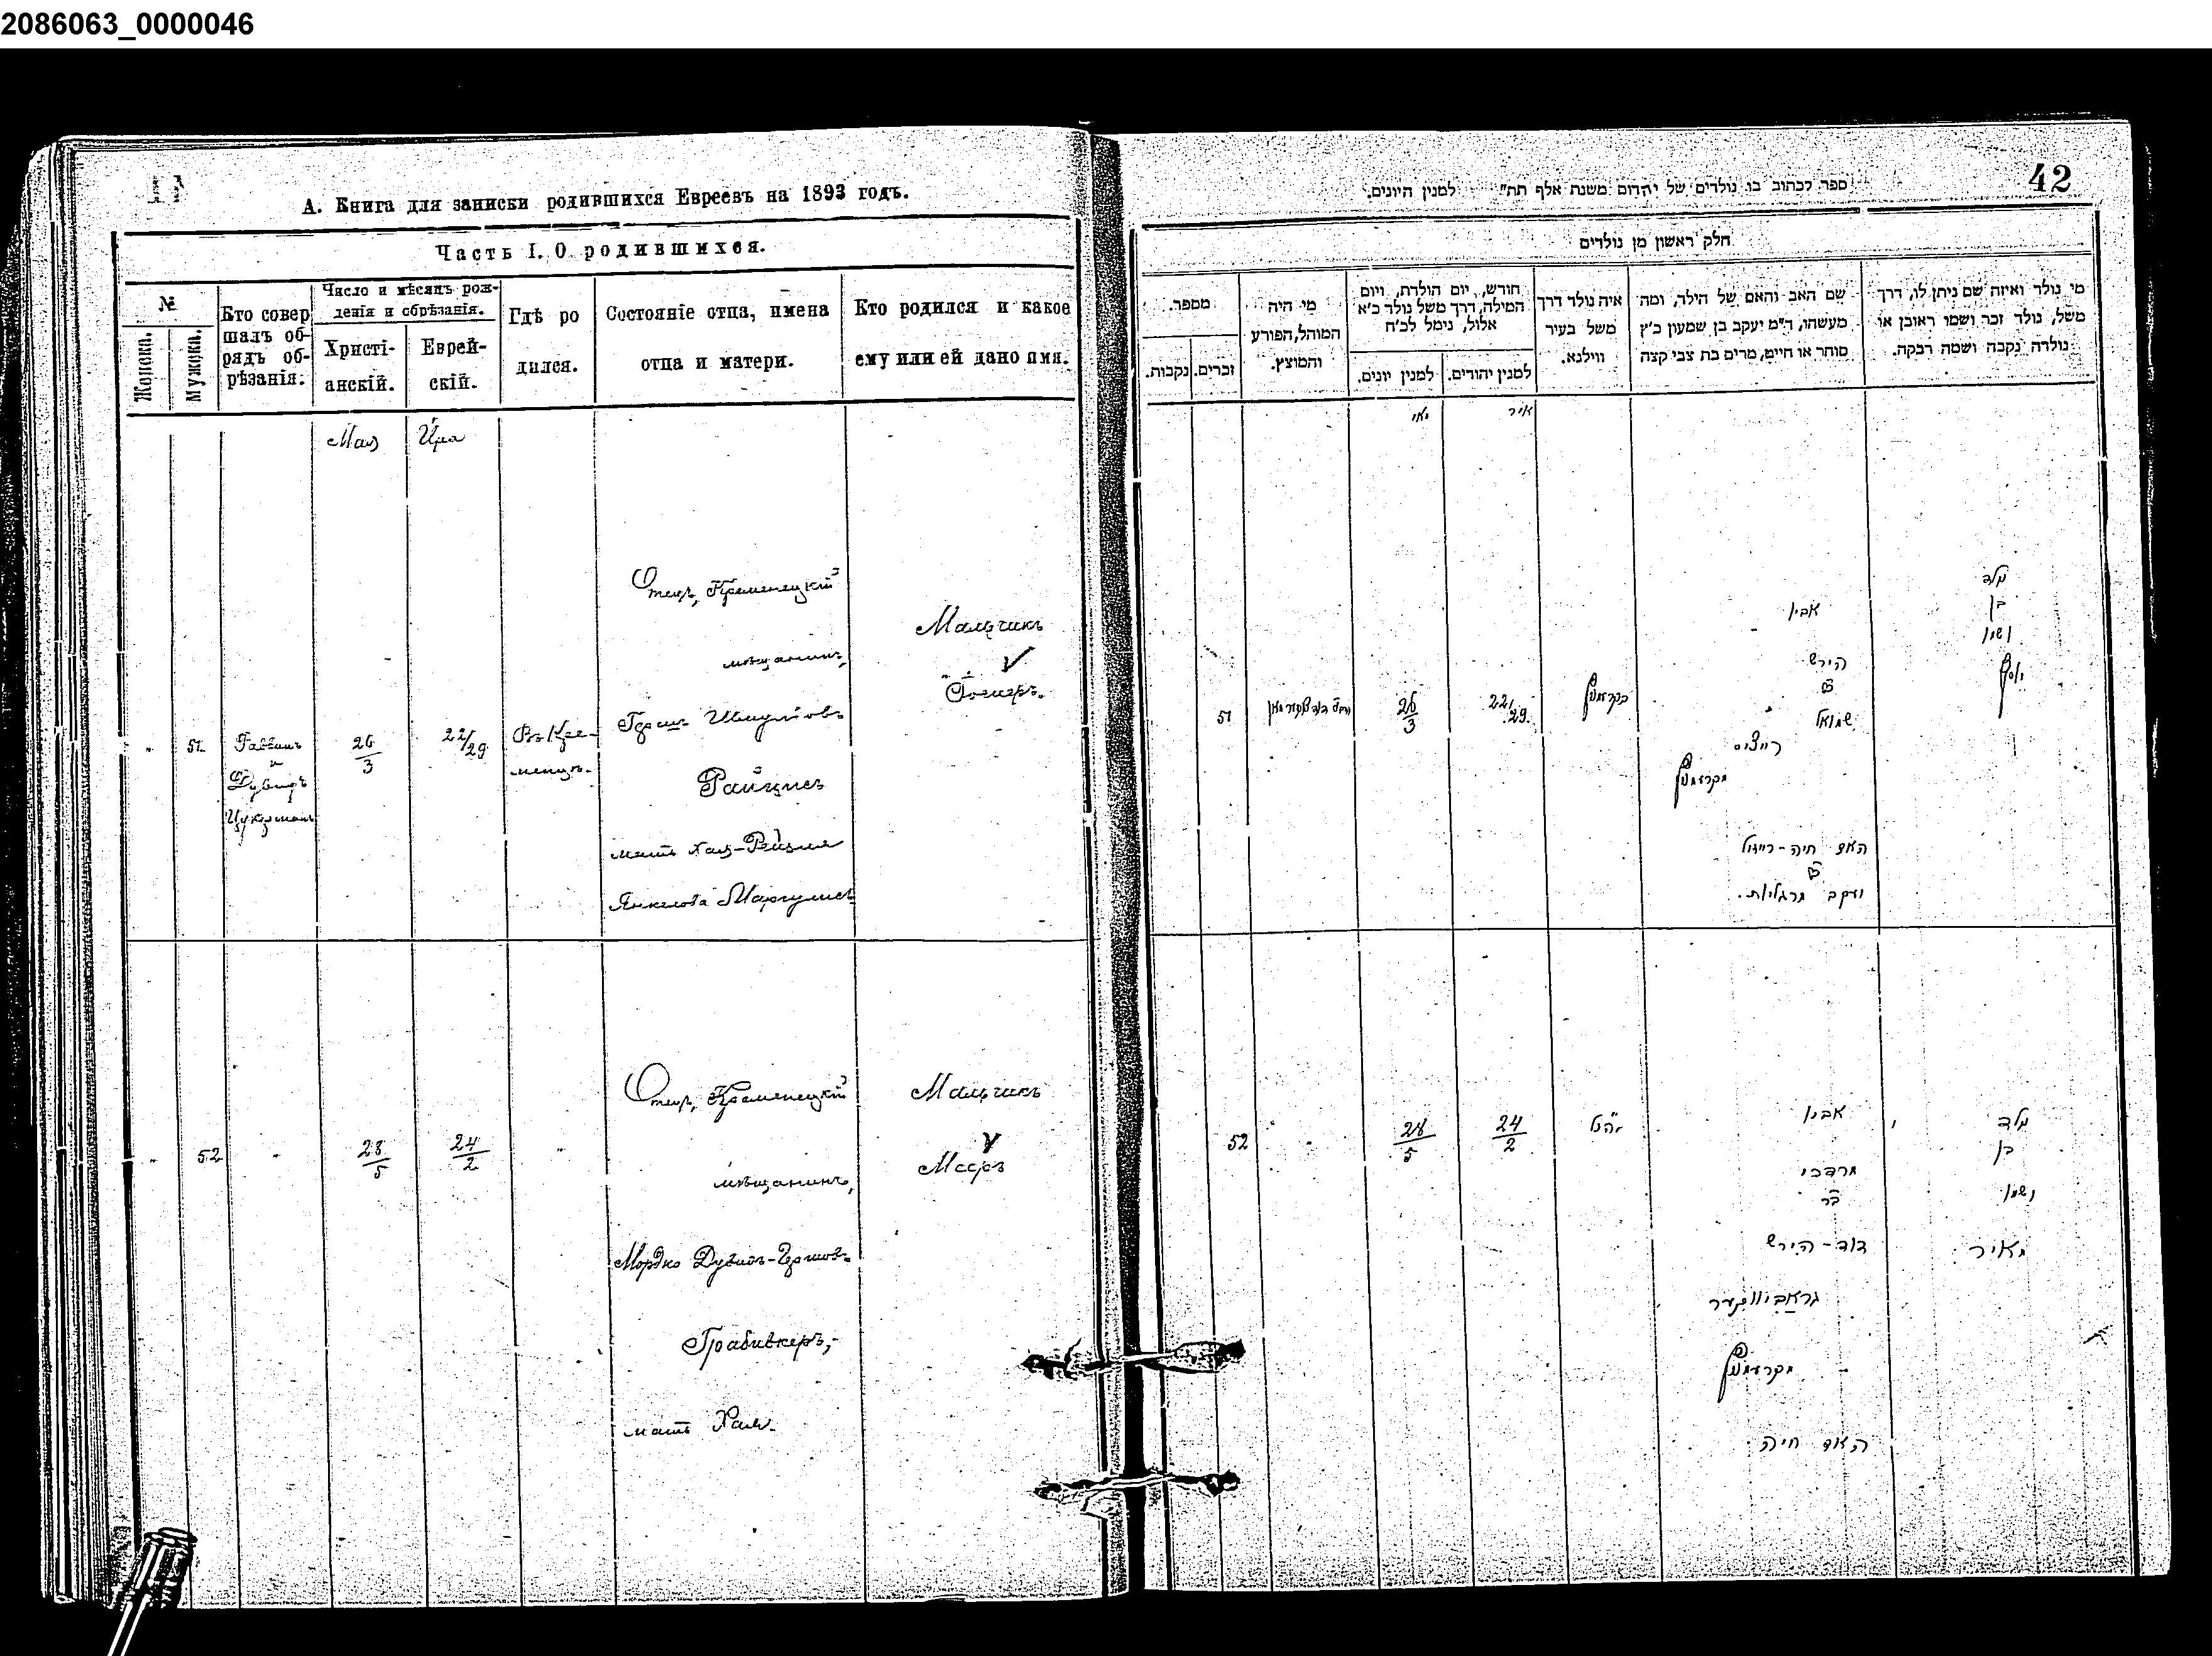 2086063_0000046
А. Книга для записки родившихся Евреевъ на 1893 годъ.
Часть I. О родившихся.
№
Женска.
Мужска.
Кто совер
шалъ об-
рядъ об-
рѣзанія.
Число и мѣсяцъ рож-
денія и обрѣзанія.
Христі-
анскій.
Еврей-
скій.
Гдѣ ро
дился.
Состояніе отца, имена
отца и матери.
Кто родился и какое
ему или ей дано имя.
Мая
51.
Раввинъ
и
Дувидъ
Цукерманъ
26/3
22/29
Въ Кре-
менцѣ.
Отецъ, Кременецкій
мѣщанинъ,
Герш Шмулёвъ
Райцисъ
мать Хая-Рейзля
Янкелева Маргулисъ
Мальчикъ
52
28/5
24/2
Отецъ, Кременецкій
мѣщанинъ,
Мордко Дувидъ-Гершов.
Грабивкеръ,
мать Хая.
Мальчикъ
Мееръ
42
ספר לכתוב בו נולדים של יהדום משנת אלף תת״ למנין היונים.
חלק ראשון מן נולדים
מספר.
זכרים.
נקבות.
מי היה
המוהל, הפורע
והמוצץ.
חורש, יום הולדת, ויום
המילה, דרך משל נולד כ׳א
אלול, נימל לכ׳ח
למנין יהודים.
למנין יונים.
איה נולד דרך
משל בעיר
ווילנא.
שם האב והאם של הילד, ומה
מעשהו, ד״מ יעקב בן שמעון כ׳ץ
סוחר או חייט, מרים בת צבי קצה
מי נולד ואיזה שם ניתן לו, דרך
משל, נולד זכר ושמו ראובן או
נולדה נקבה ושמה רבקה.
מאי
איר
51
26/3
22/29.
אביו
הירש
שמואל
רייצים
האם חיה-רייזל
יעקב מרגליות.
בן
ושמו
יוסף
52
28/5
24/2
אביו
מרדכי
בר
דוד-הירש
גראביווקער
האם חיה
בן
ושמו
מאיר